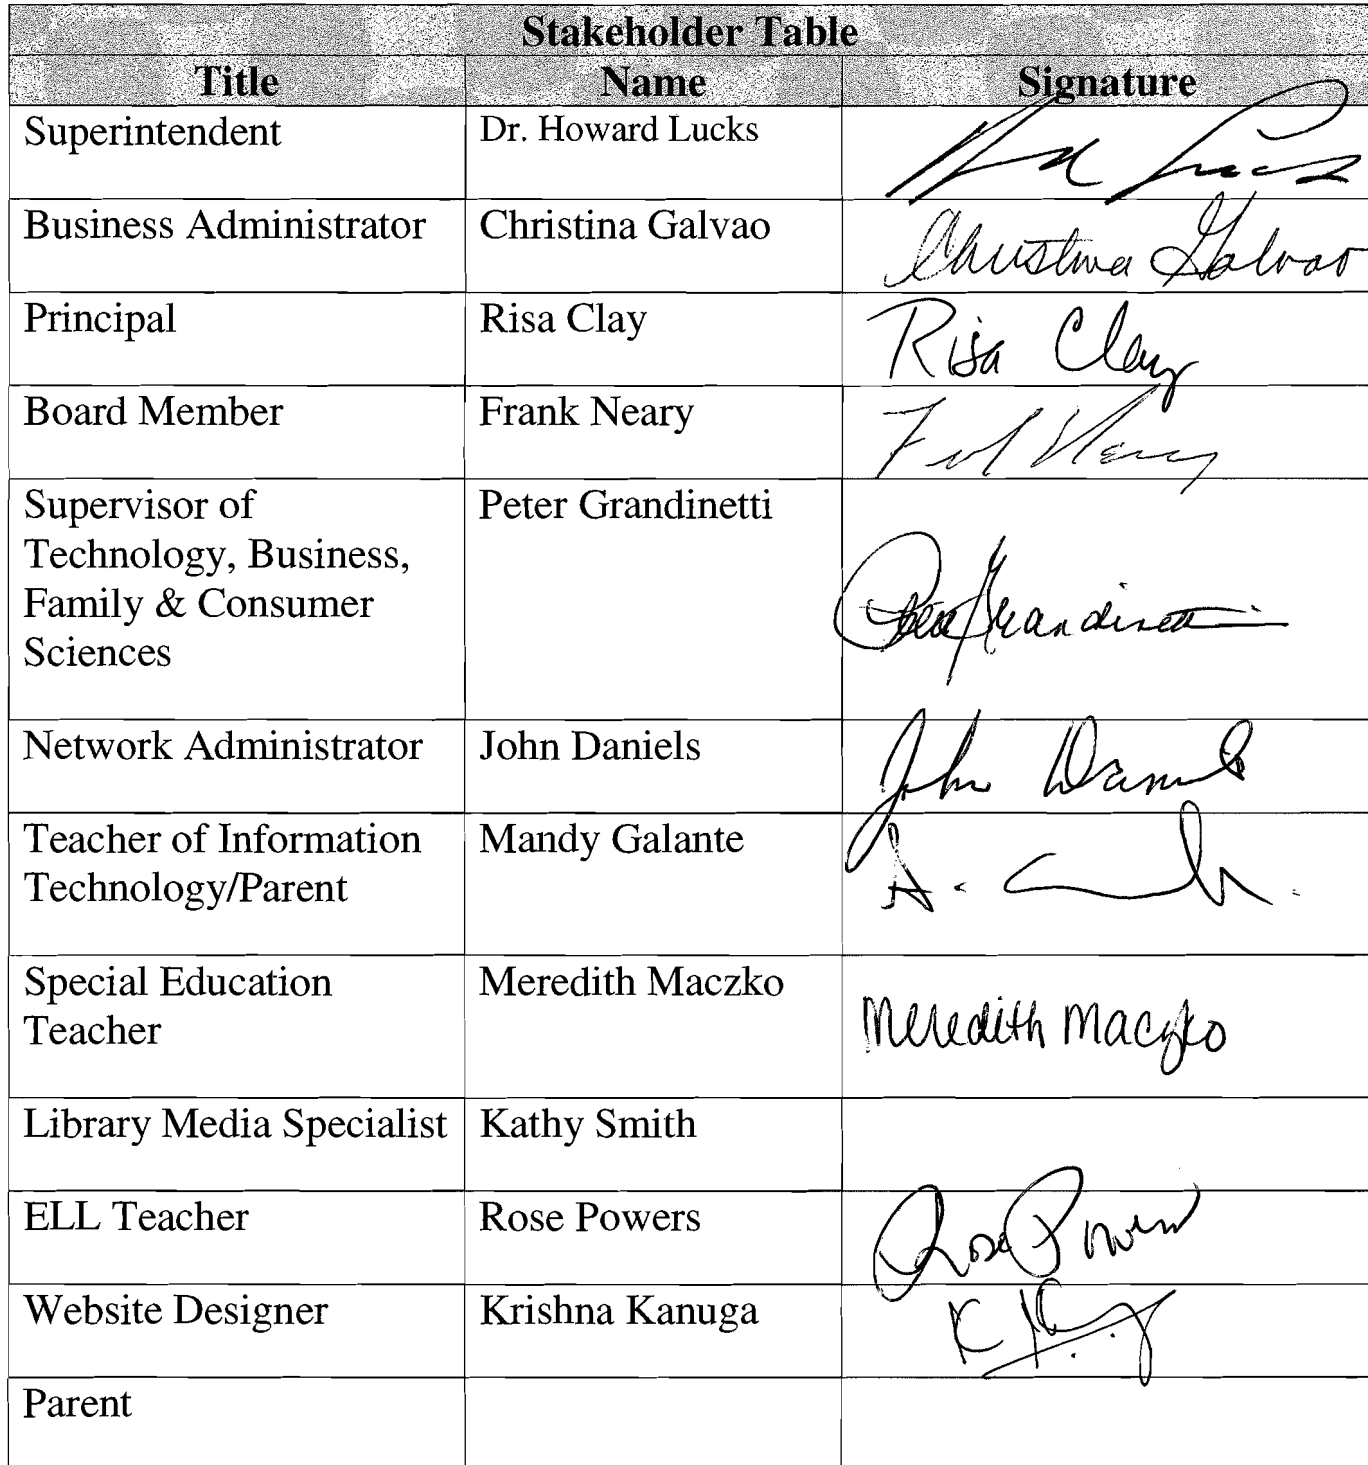 Stakeholder Table
Title Name Signature
Superintendent Dr. Howard Lucks
Business Administrator Christina Galvao Christina Galvao
Principal Risa Clay Risa Clay
Board Member Frank Neary
Supervisor of Peter Grandinetti
Technology, Business,
Family & Consumer
Sciences
Peter Grandinetti
Network Administrator John Daniels John Daniels
Teacher of Information Mandy Galante
Technology/Parent
Special Education Meredith Maczko
Teacher
Meredith Maczko
Library Media Specialist Kathy Smith
ELL Teacher Rose Powers Rose Powers
Website Designer Krishna Kanuga
Parent